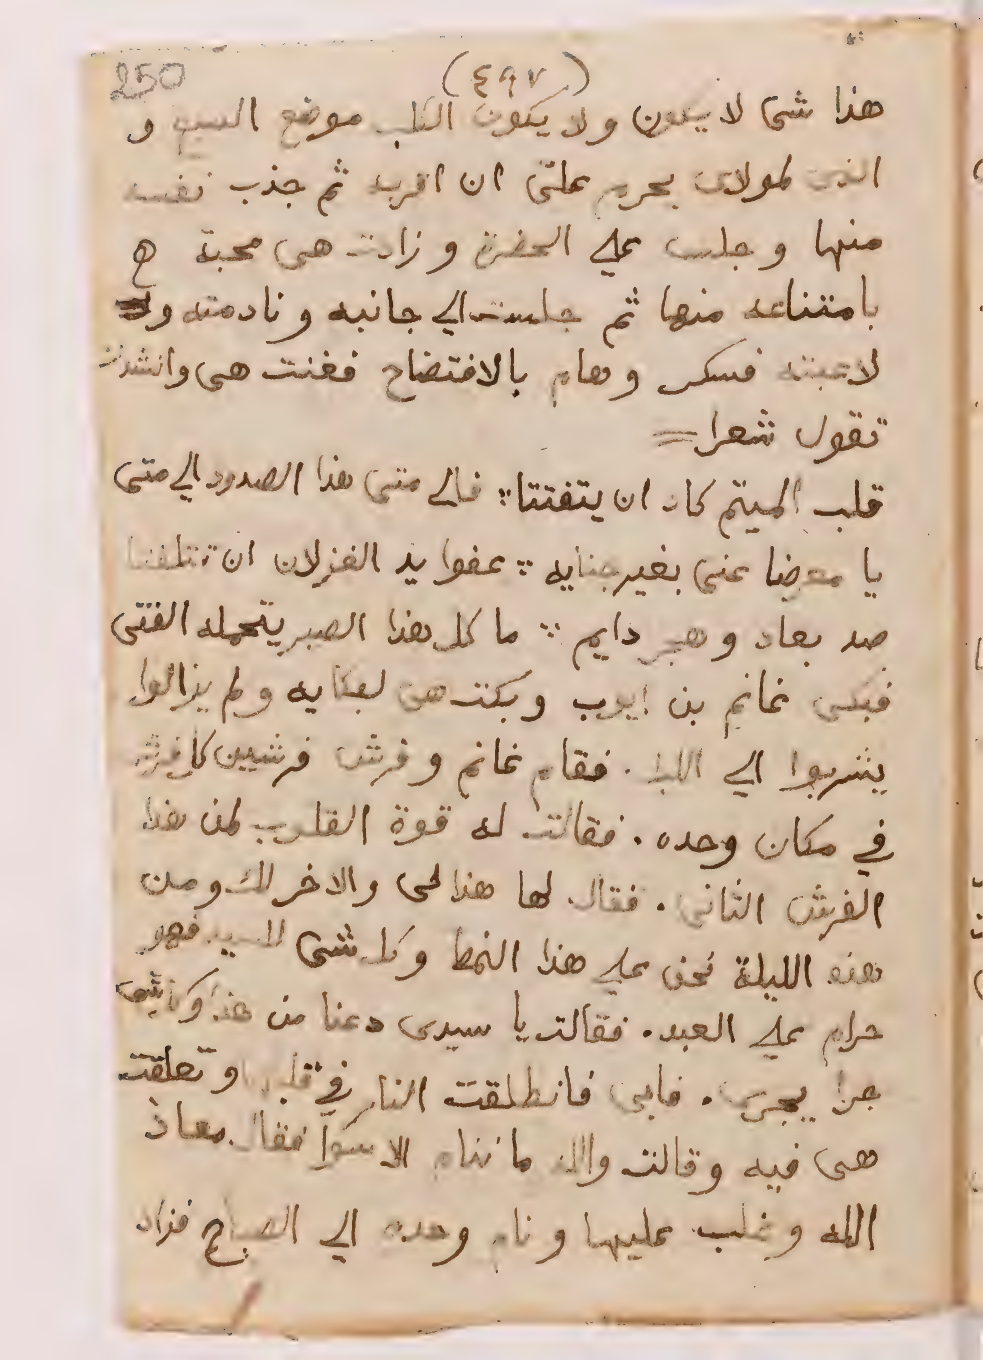 250
(٤٩٧)
هذا شى لا يكون ولا يكون الكلب موضع السبع و
الذى لمولاى يحرم علىّ ان اقربه ثم جذب نفسه
منها وجلس على الحضرة وزادت هى محبة
بامتناعه منها ثم جلست الي جانبه ونادمته و
لاعبته فسكر وهام بالافتضاح فغنت هى وانشدت
تقول شعرا
قلب الميتم كاد ان يتفتتا فالى متى هذا الصدود الي متى
يا معرضا عنى بغير جنايه عفوايد الغزلان ان تتلفتا
صد بعاد وهجر دايم ما كل هذا الصبر يتحمله الفتى
فبكى غانم بن ايوب وبكت هى لبكايه ولم يزالوا
يشربوا الي الليل . فقام غانم وفرش فرشيين كل فرش
في مكان وحده . فقالت له قوة القلوب لمن هذا
الفرش الثانى . فقال لها هذا لى والاخر لك ومن
هذه الليلة نحن على هذا النمط وكل شى للسيد فهو
حرام على العبد . فقالت يا سيدى دعنا من هذا وكل شى
جرا يجرى . فابى فانطلقت النار في قلبها وتعلقت
هى فيه وقالت والله ما ننام الا سوا فقال معاذ
الله وغلب عليها ونام وحده الي الصباح فزاد